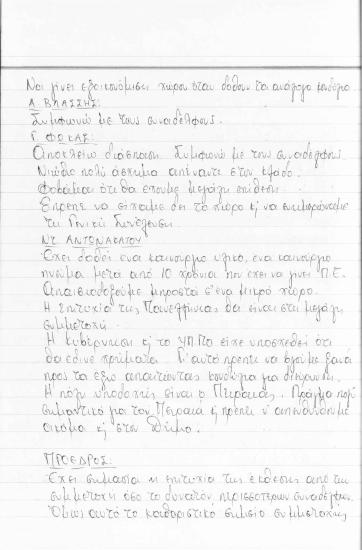 Να γίνει εξοικονόμιση χώρου όταν δοθούν τα ανάλογα κονδύλια
Α. ΒΛΑΣΣΗΣ:
Συμφωνώ με τους συναδέλφους.
Γ. ΦΩΚΑΣ:
Αποκλείω διάσπαση. Συμφωνώ με τους συναδέλφους.
Νιώθω πολύ άσχημα απέναντι στον κλάδο.
Φοβάμαι ότι θα έχουμε μεγάλη επίθεση.
Έπρεπε να είχαμε δει το χώρο κ' να ενημερώναμε
τη Γενική Συνέλευση.
ΝΤ. ΑΝΤΩΝΑΚΑΤΟΥ
Έχει δοθεί ένα καινούργιο υλικό, ένα καινούργιο
πνεύμα μετά από 10 χρόνια που έχει να γίνει Π.Ε.
μπροστά σ' ένα μικρό χώρο.
Η επιτυχία της Πανελλήνιας θα είναι στη μεγάλη
συμμετοχή.
Η κυβέρνηση κ' το ΥΠ.ΠΟ είχε υποσχεθεί ότι
θα έδινε χρήματα. Γι' αυτό πρέπει να βγούμε ξανά
προς τα έξω απαιτώντας κονδύλια για διεύρυνση.
Η πόλη υποδοχής είναι ο Πειραιάς. Πράγμα πολύ
σημαντικό για τον Πειραιά κ' πρέπει ν' απευθυνθούμε
ακόμα κ' στον Δήμο.
ΠΡΟΕΔΡΟΣ:
Έχει σημασία η επιτυχία της έκθεσης από τη
συμμετοχή όσο το δυνατόν περισσοτέρων συναδέλφων.
Όμως αυτό το καθοριστικό σημείο συμμετοχής